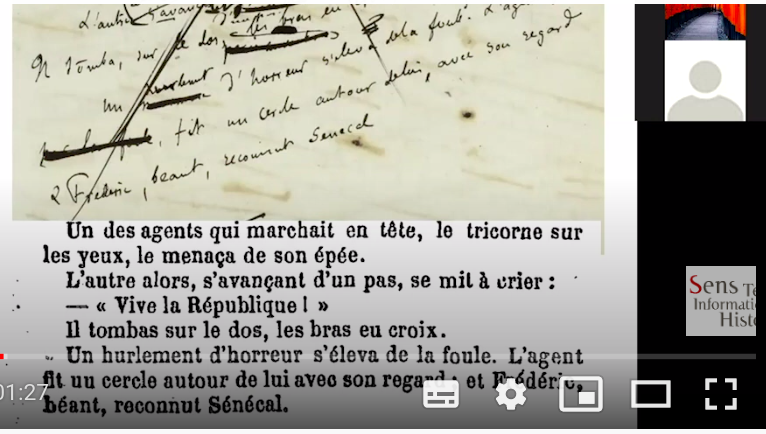 L'autre
Il tomba, sur le dos, les bras en
Un d'horreur s'éleva de la foule. L'agent
fit un cercle autour de lui, avec son regard
& Frederic, beant, reconnut Senecal
Un des agents qui marchait en tête, le tricorne sur
les yeux, le menaça de son épée.
L'autre alors, s'avançant d'un pas, se mit à crier :
— « Vive la République ! »
Il tombas sur le dos, les bras eu croix.
Un hurlement d'horreur s'éleva de la foule. L'agent
fit uu cercle autour de lui avec son regard; et Frédéric,
béant, reconnut Sénécal.
01:27
Sens Te
Informati
Histo